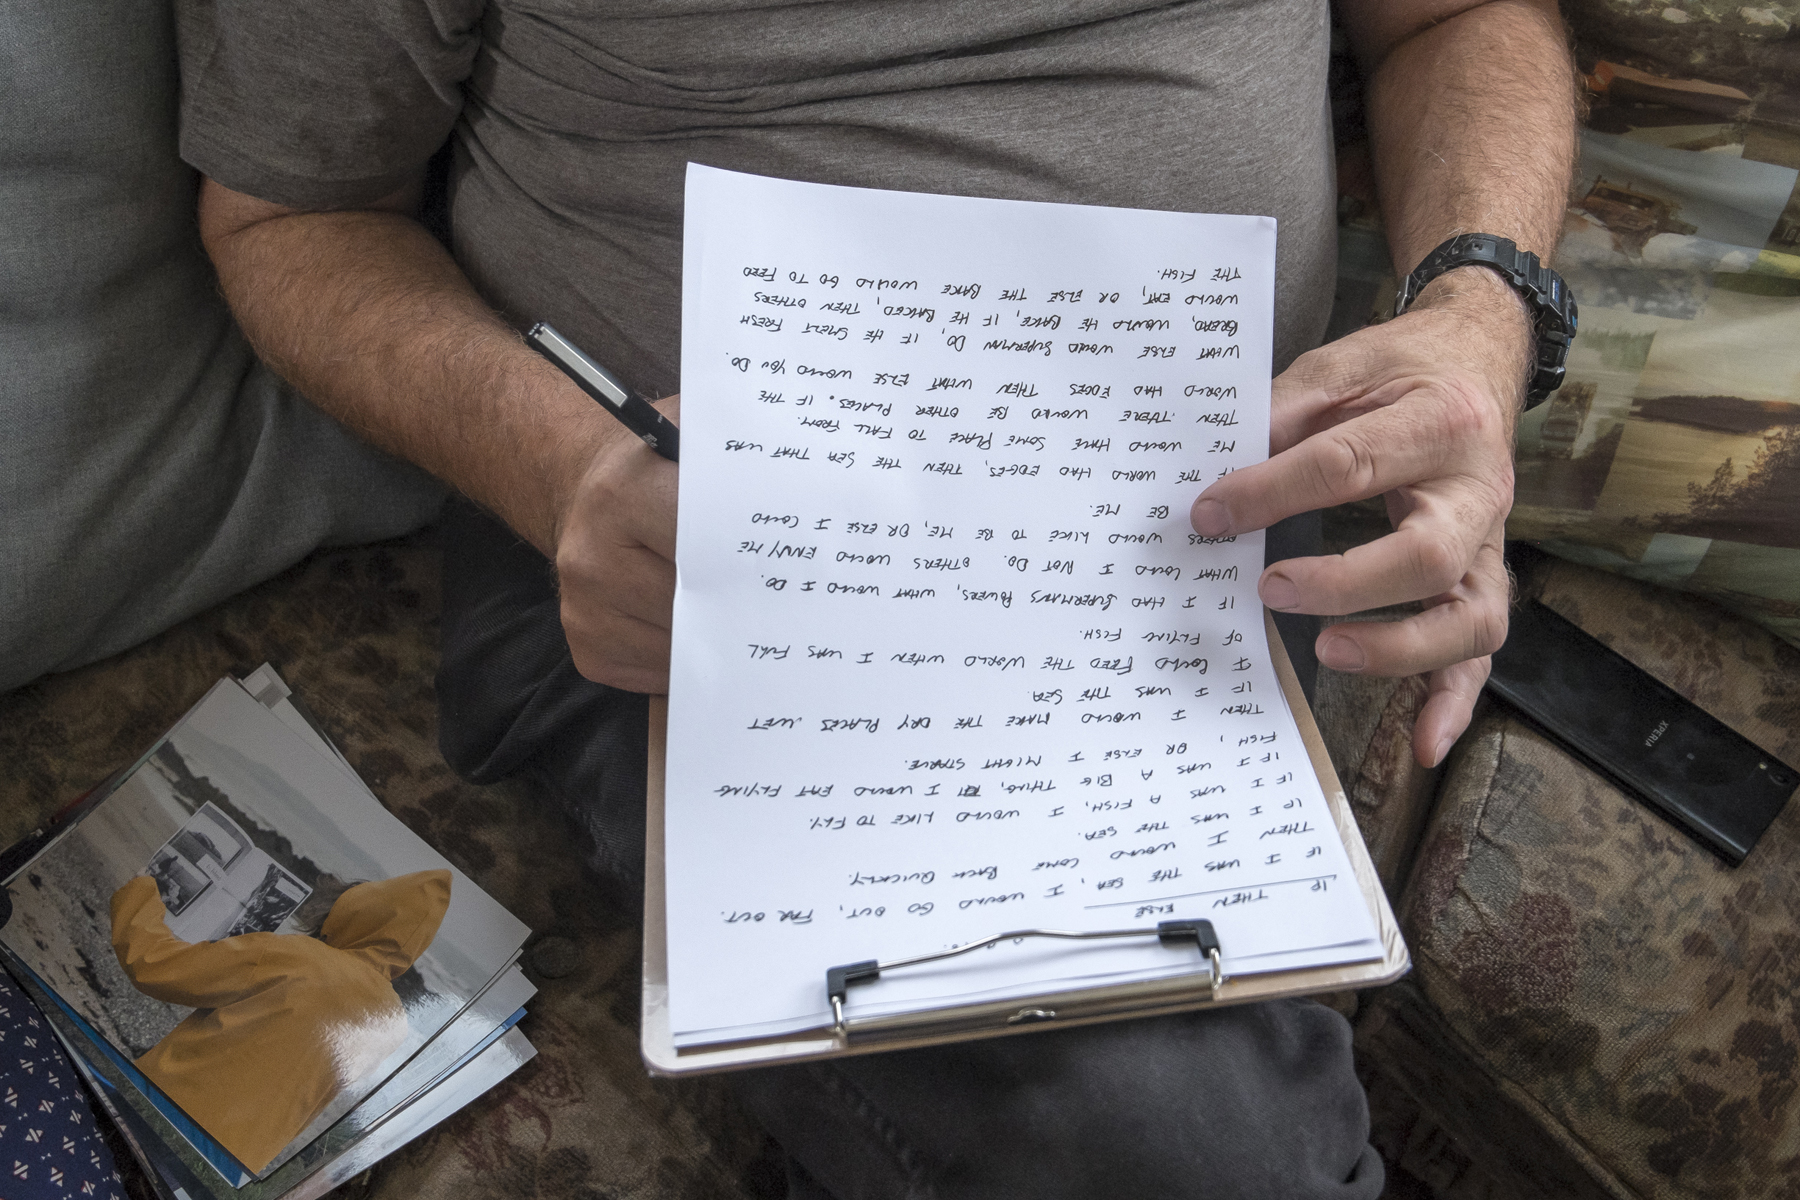 IF THEN ELSE
IF I WAS THE SEA, I WOULD GO OUT, FAR OUT.
THEN I WOULD COME BACK QUICKLY.
IF I WAS THE SEA.
IF I WAS A FISH, I WOULD LIKE TO FLY.
IF I WAS A BIG THING, I WOULD EAT FLYING
FISH, OR ELSE I MIGHT STARVE.
THEN I WOULD MAKE THE DRY PLACES WET
IF I WAS THE SEA.
I COULD FEED THE WORLD WHEN I WAS FULL
OF FLYING FISH.
IF I HAD SUPERMANS POWERS, WHAT WOULD I DO.
WHAT COULD I NOT DO. OTHERS WOULD ENVY ME
OTHERS WOULD LIKE TO BE ME, OR ELSE I COULD
BE ME.
IF THE WORLD HAD EDGES, THEN THE SEA THAT WAS
ME WOULD HAVE SOME PLACE TO FALL FROM.
THEN THERE WOULD BE OTHER PLACES. IF THE
WORLD HAD EDGES THEN WHAT ELSE WOULD YOU DO.
WHAT ELSE WOULD SUPERMAN DO, IF HE SMELT FRESH
BREAD, WOULD HE BAKE, IF HE BAKED, THEN OTHERS
WOULD EAT, OR ELSE THE BAKE WOULD GO TO FEED
THE FISH.
XPERIA